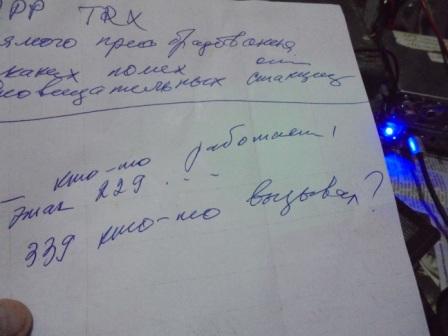 РР TRX
ямого преобразования
каких помех от
овещательных станций
– кто-то работает!
Этаг 229 . . –
339 кто-то вызывал?